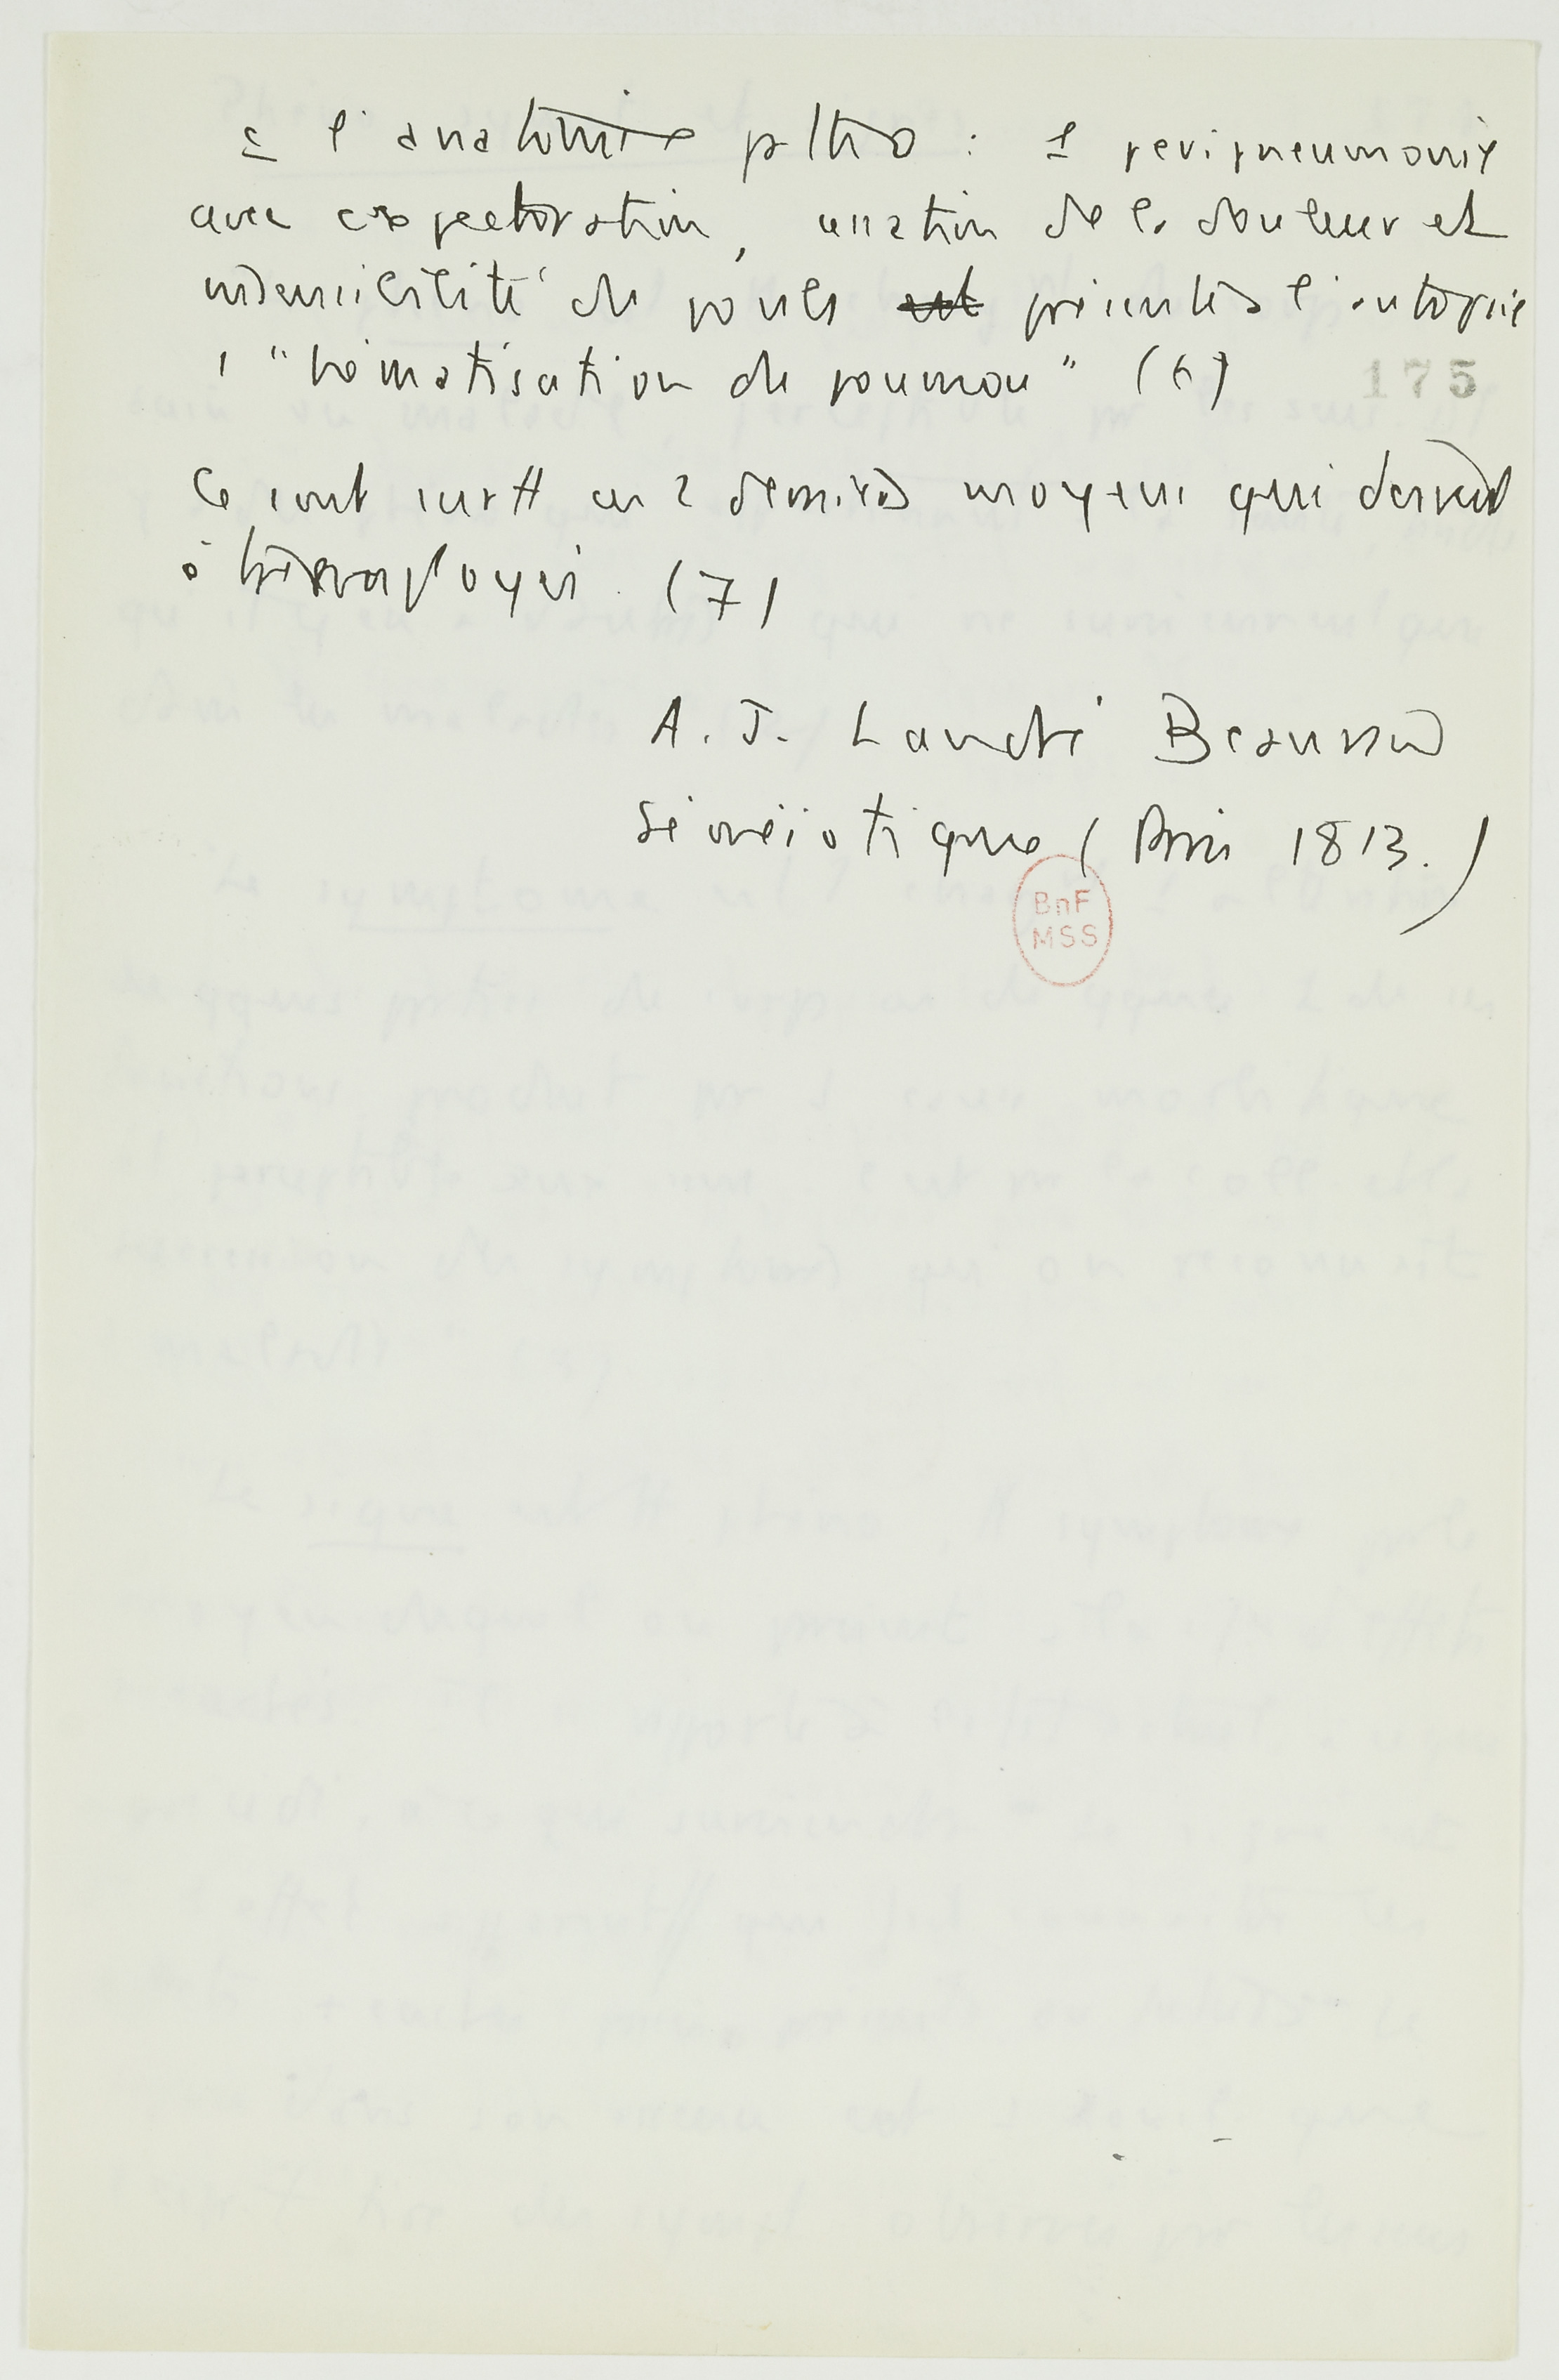 c l'anatomie patho : 1 peripneumonie
avec expectoration, cessation de la douleur et
insensibilité du pouls est présente à l'autopsie
1 "hépatisation du poumon" (6)
175
Ce sont surtt ces 2 derniers moyens qui doivent
être employés. (7)
A. J. Landré Beauvais
Séméiotique (Paris 1813.)
BnF
MSS